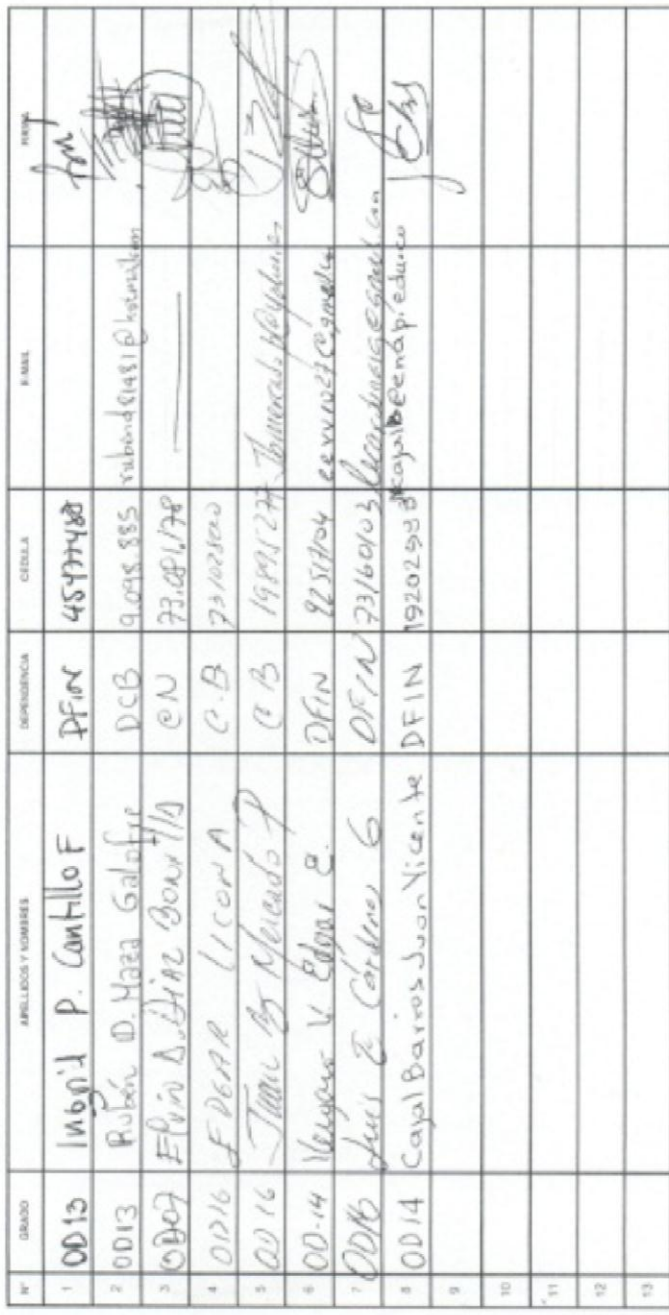 N° GRADO APELLIDOS Y NOMBRES DEPENDENCIA CEDULA E-MAIL FIRMA
1 OD13 Ingrid P. Cantillo F DFIN 45477488
2 OD13 Rubén D. Maza Galofre DCB 9.098.885 rubend81481@hotmail.com
3 OD07 Elvio D. DIAZ BONILLA CN 73.081.178
4 OD16 EDGAR LICONA C.B 73102800
5 OD16 Juan B Mercado P C B 19895277
6 OD-14 Vergara V Edgar E. DFIN 92517104
7 OD16 Luis E Cárdenas G DFIN 73160103
8 OD14 Cajal Barrios Juan Vicente DFIN
9
10
11
12
13